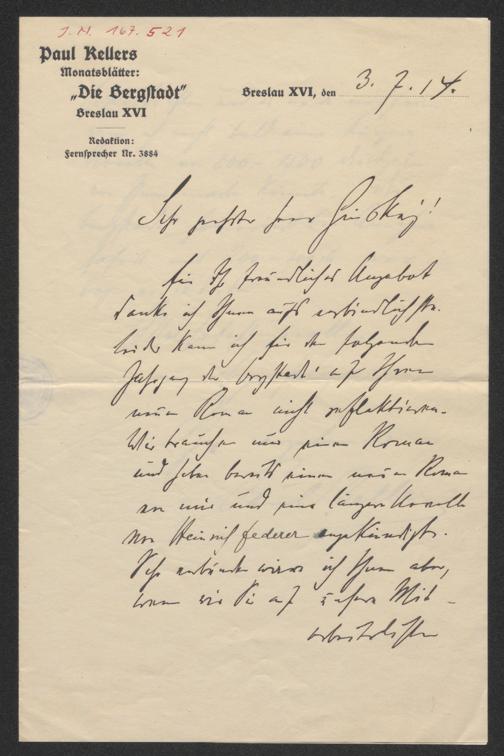 J. N. 167.521
Paul Kellers
Monatsblätter:
„Die Bergstadt"
Breslau XVI
Redaktion:
Fernsprecher Nr. 3884
Breslau XVI, den 3. 7. 14.
Sehr geehrter Herr Ginzkey!
für Ihr freundliches Angebot
danke ich Ihnen aufs verbindlichste.
Leider kann ich für den folgenden
Jahrgang der „Bergstadt" auf Ihren
neuen Roman nicht reflektieren.
Wir brauchen nur einen Roman
und haben bereits einen neuen Roman
von mir und eine längere Novelle
von Heinrich Federer angekündigt.
Sehr verbunden wäre ich Ihnen aber,
wenn wir Sie auf unsere Mit-
arbeiterlisten